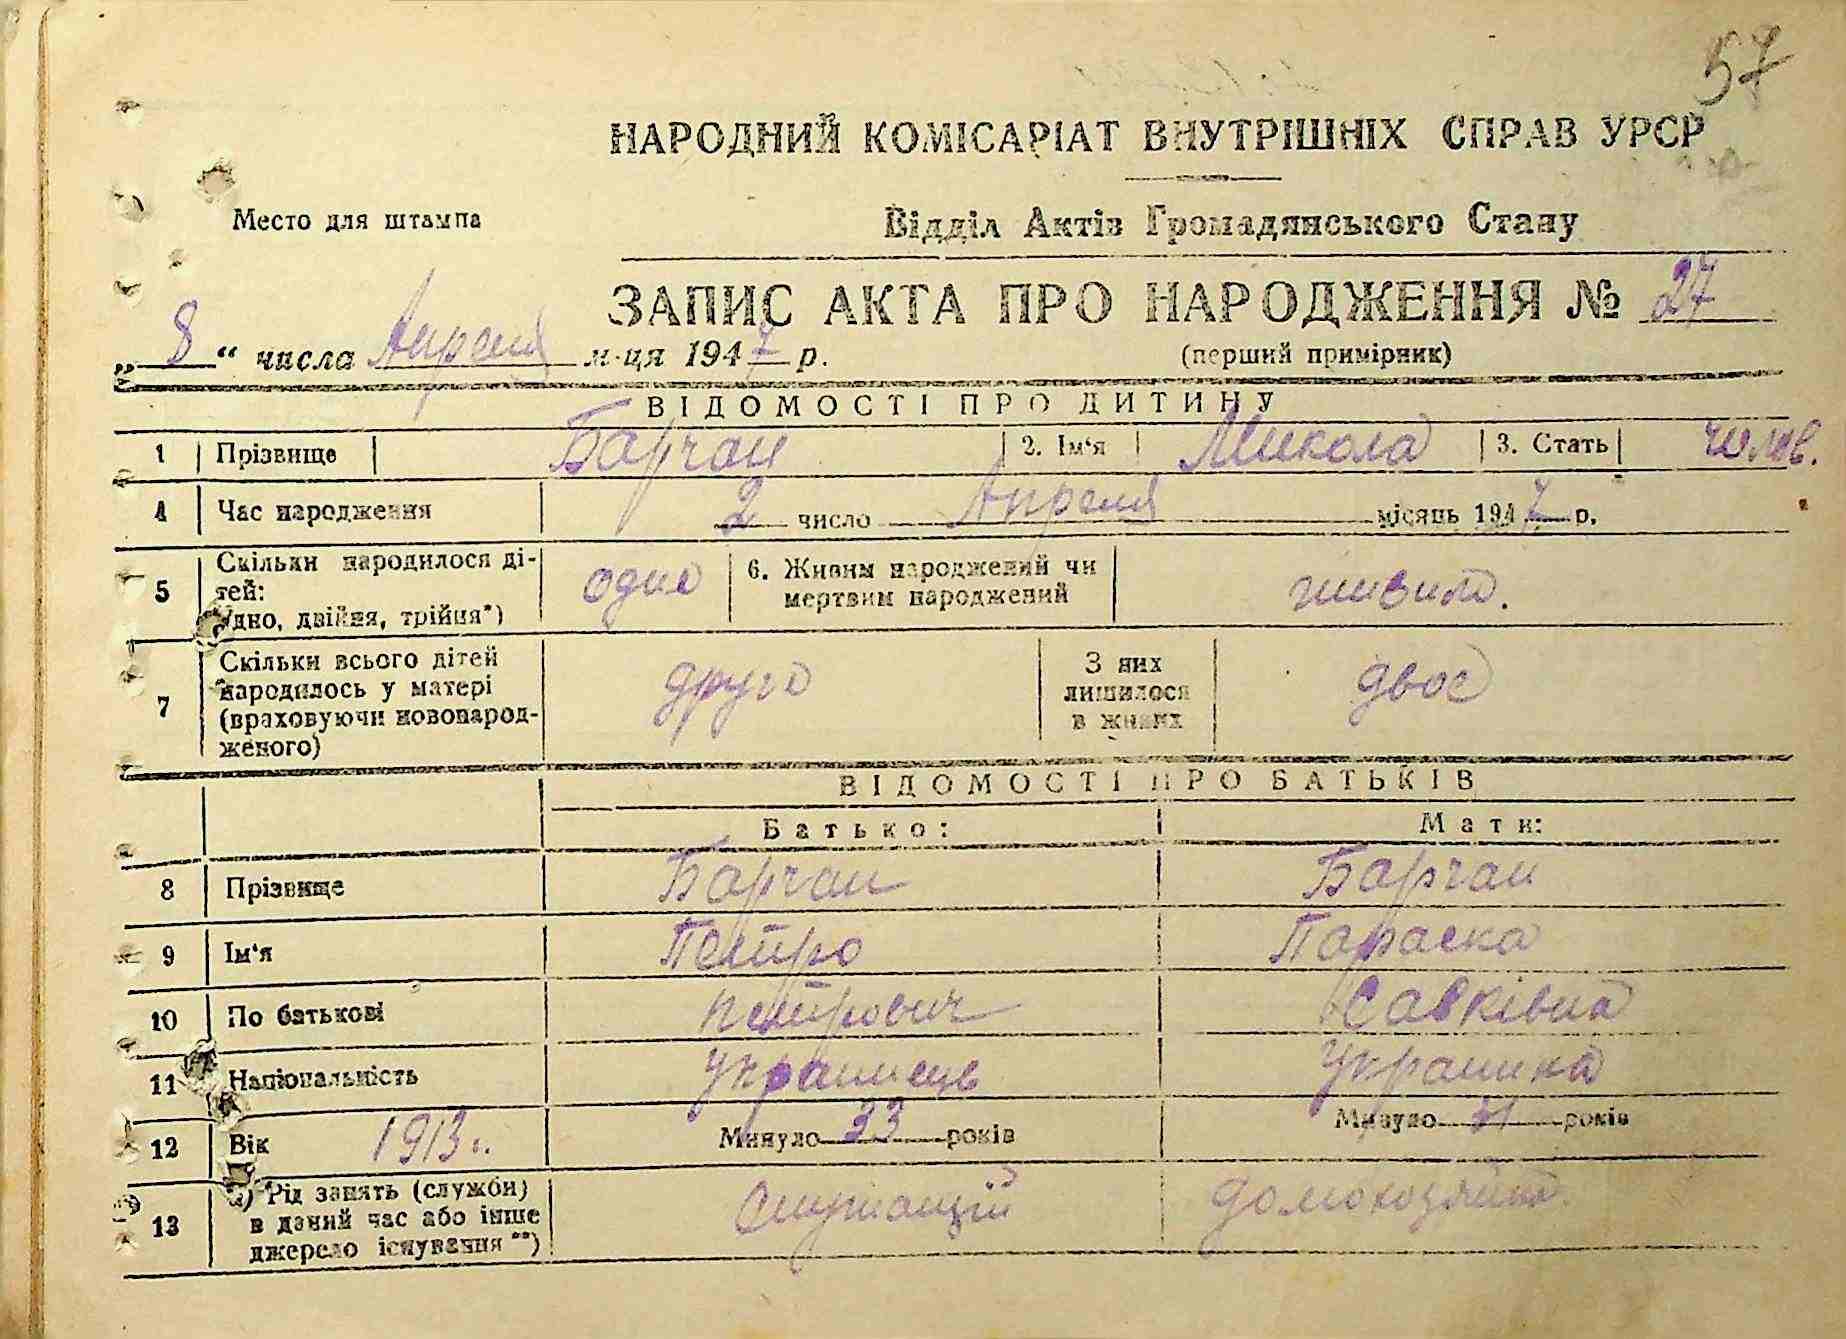 57
НАРОДНИЙ КОМІСАРІАТ ВНУТРІШНІХ СПРАВ УРСР
Место для штампа
Відділ Актів Громадянського Стану
ЗАПИС АКТА ПРО НАРОДЖЕННЯ № 27
„8“ числа Апреля м-ця 1947 р.
(перший примірник)
ВІДОМОСТІ ПРО ДИТИНУ
1 Прізвище Барчан 2. Ім'я Микола 3. Стать чолов.
4 Час народження 2 число Апреля місяць 1947 р.
5 Скільки народилося ді-
тей:
одно, двійня, трійня*) одне 6. Живим народжений чи
мертвим народжений живим.
7 Скільки всього дітей
народилось у матері
(враховуючи новонарод-
женого) друго З них
лишилося
в живих двоє
ВІДОМОСТІ ПРО БАТЬКІВ
Батько: Мати:
8 Прізвище Барчан Барчан
9 Ім'я Петро Параска
10 По батькові Петрович Савківна
11 Національність Украинець Украинка
12 Вік 1913 г. Минуло 33 років Минуло 31 років
13 а) Рід занять (служби)
в даний час або інше
джерело існування**) Служащій домохозяйка.